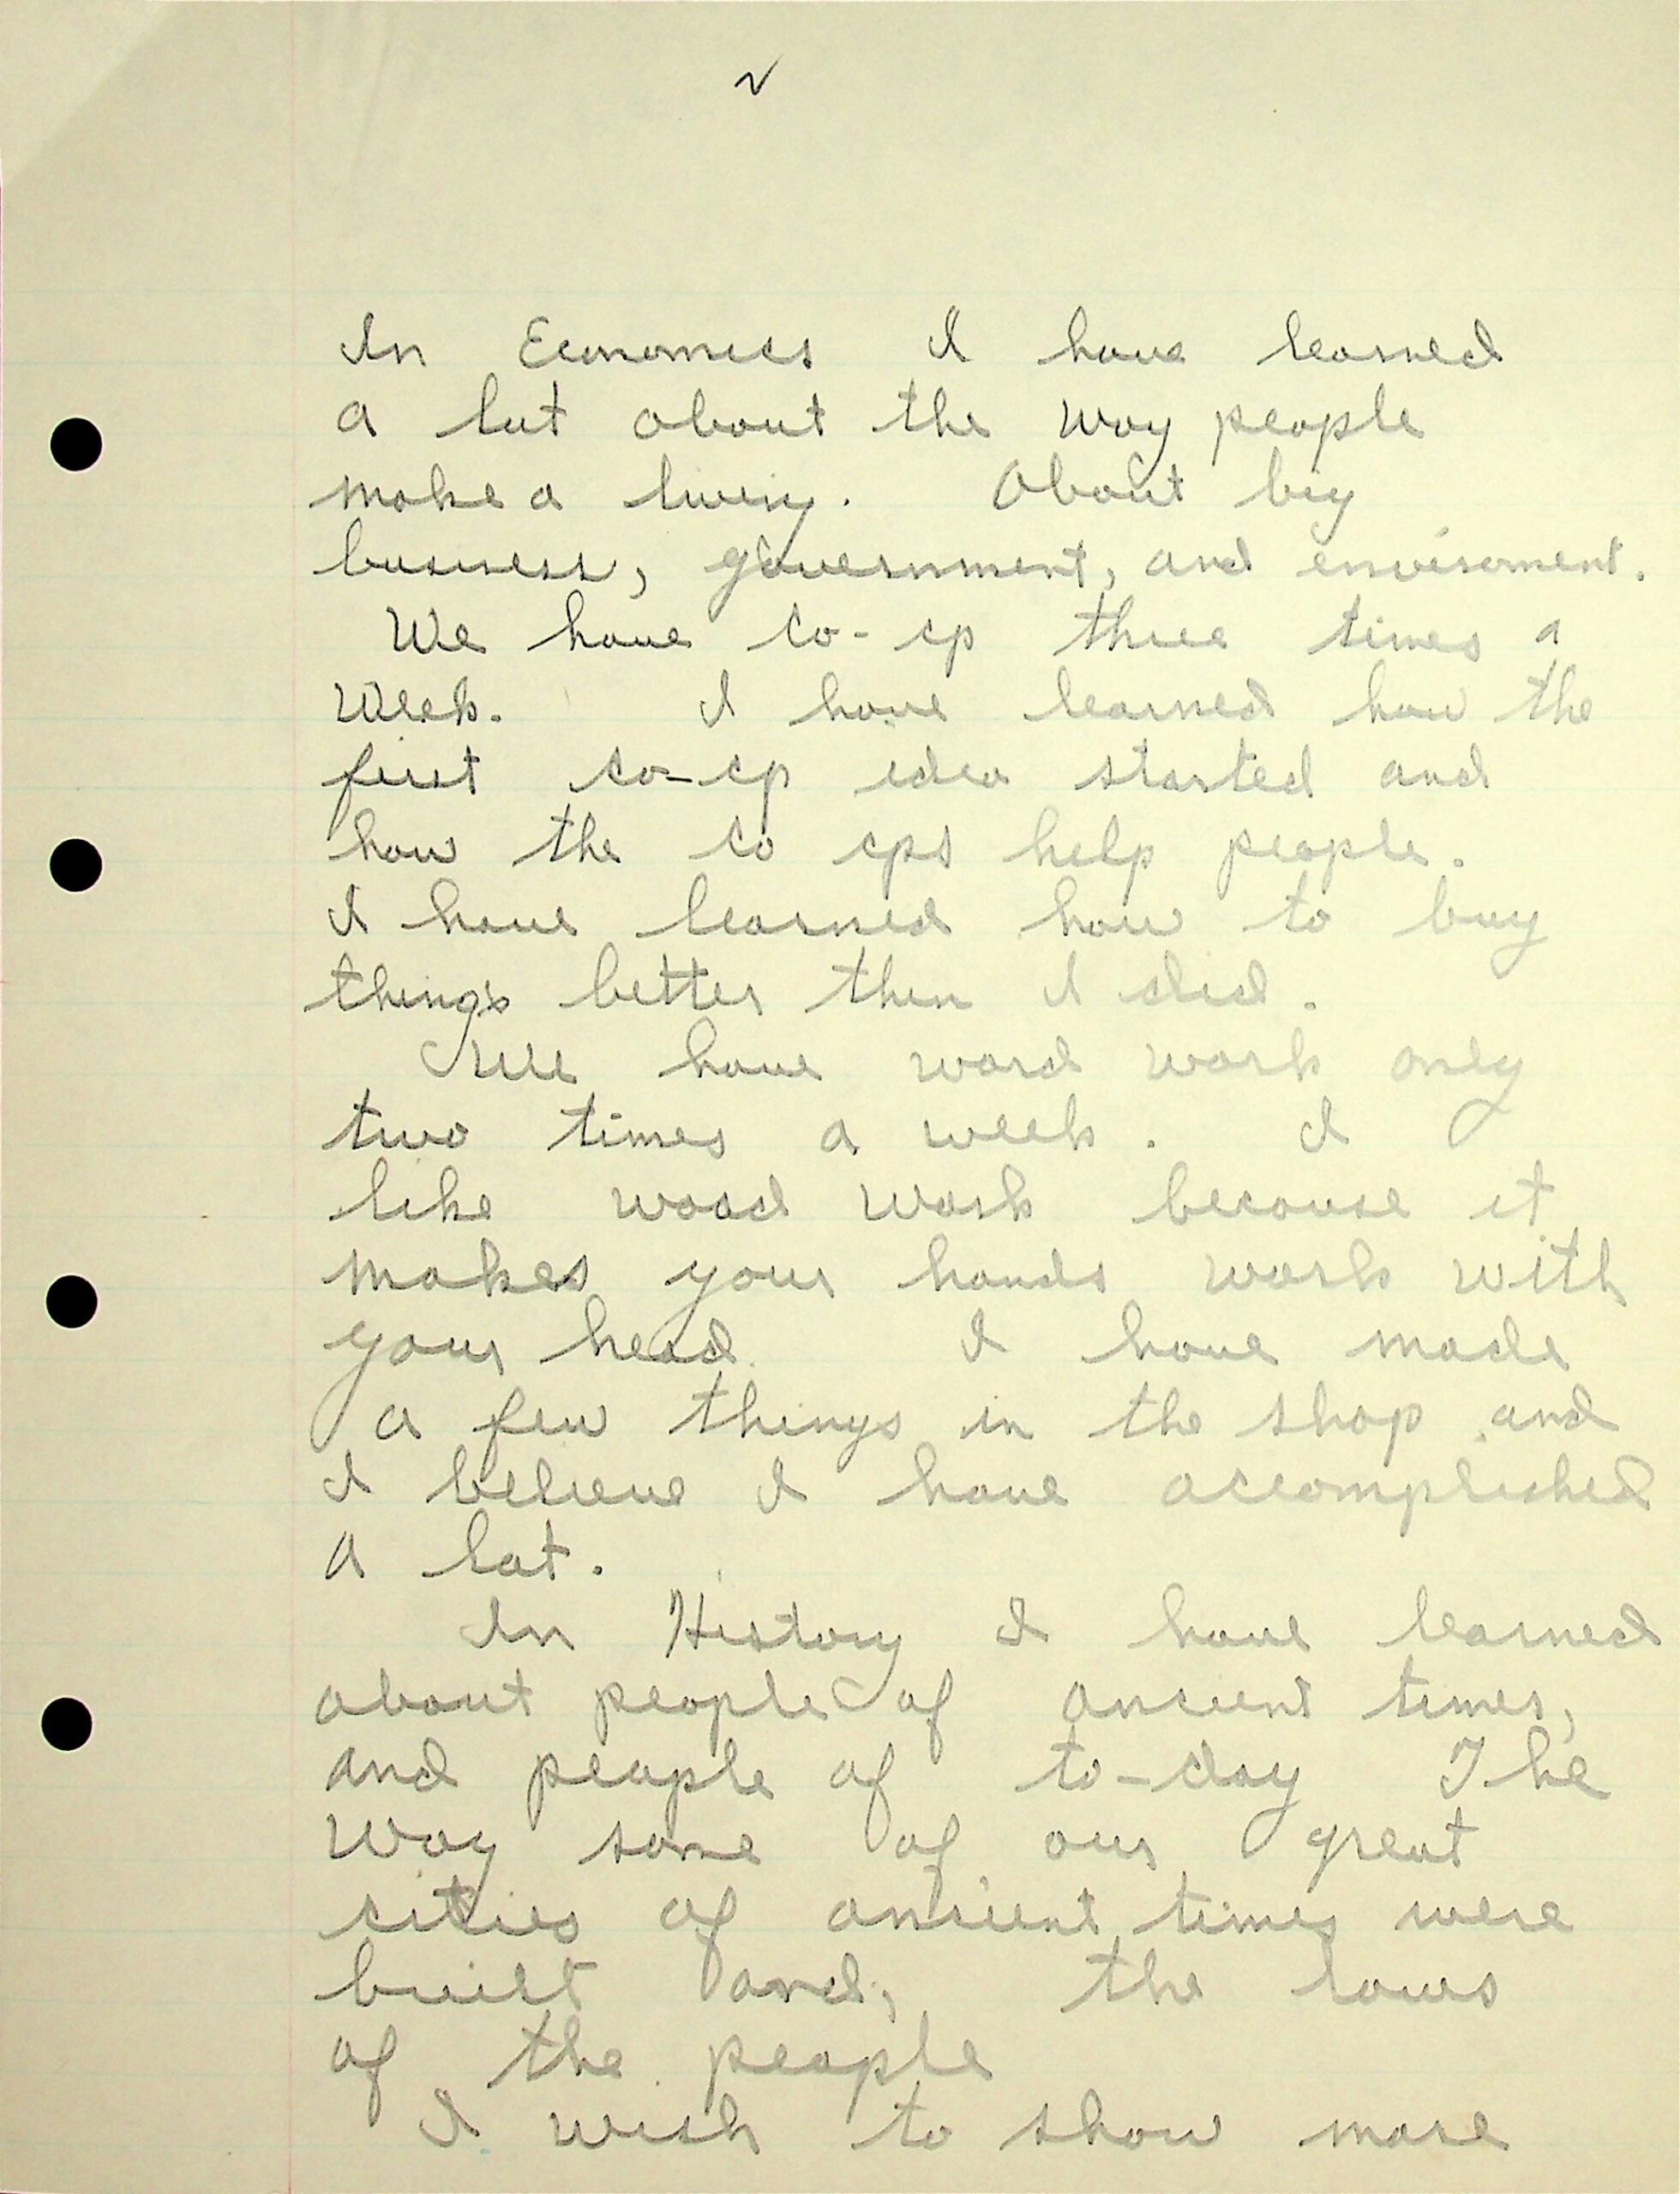 In Economics I have learned
a lot about the way people
make a living. About big
business, government, and enviroment.
We have co-op three times a
week. I have learned how the
first co-op idea started and
how the co ops help people.
I have learned how to buy
things better then I did.
We have word work only
two times a week. I
like wood work because it
makes your hands work with
your head. I have made
a few things in the shop and
I believe I have accomplished
a lot.
In History I have learned
about people of ancient times,
and people of to-day The
way some of our great
cities of ancient times were
built and, the laws
of the people
I wish to show more